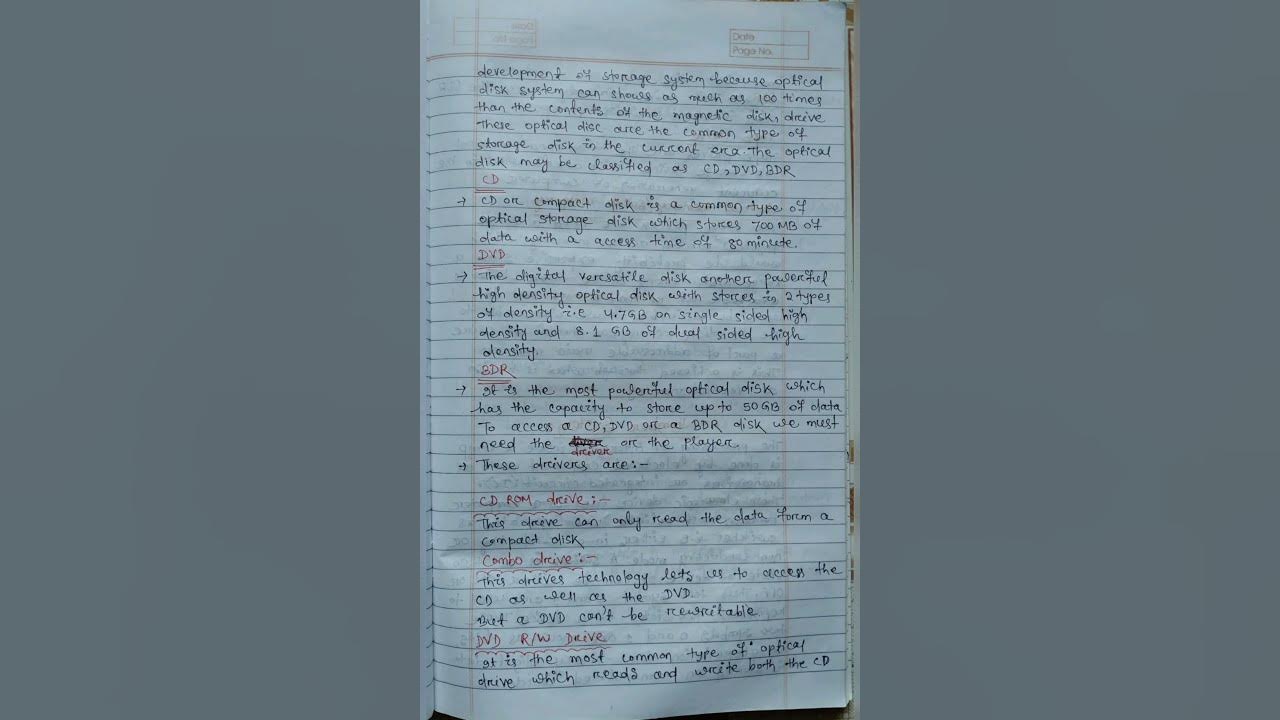 Date
Page No.
development of storage system because optical
disk system can shows as much as 100 times
than the contents of the magnetic disk, drive
These optical disc are the common type of
storage disk in the current era. The optical
disk may be classified as CD, DVD, BDR
CD
→ CD or compact disk is a common type of
optical storage disk which stores 700 MB of
data with a access time of 80 minute.
DVD
→ The digital versatile disk another powerful
high density optical disk with stores in 2 types
of density i.e 4.7GB on single sided high
density and 8.1 GB of dual sided high
density.
BDR
→ It is the most powerful optical disk which
has the capacity to store up to 50GB of data
To access a CD, DVD or a BDR disk we must
need the driver or the player.
→ These drivers are:-
CD ROM drive:-
This drive can only read the data form a
compact disk
Combo drive:-
This drives technology lets us to access the
CD as well as the DVD.
But a DVD can't be rewritable.
DVD R/W Drive
It is the most common type of optical
drive which reads and write both the CD